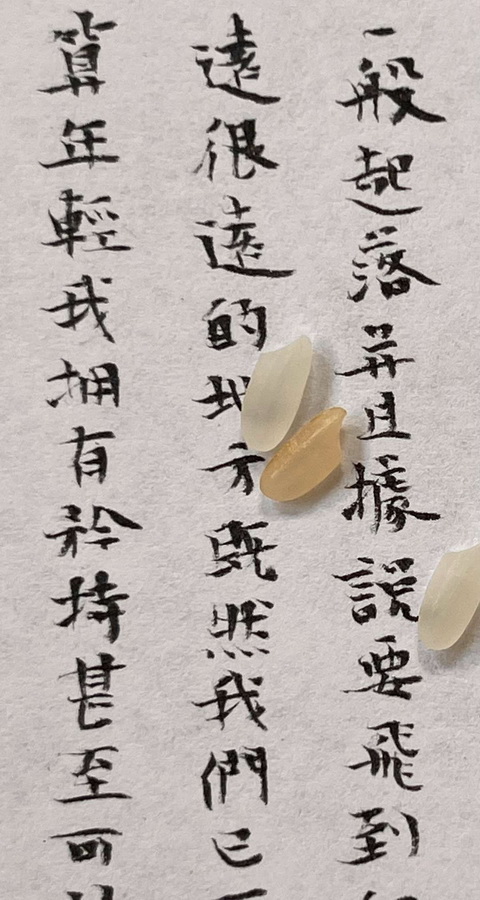 一般起落並且據說要飛到
遠很遠的地方既然我們已
算年輕我擁有矜持甚至可